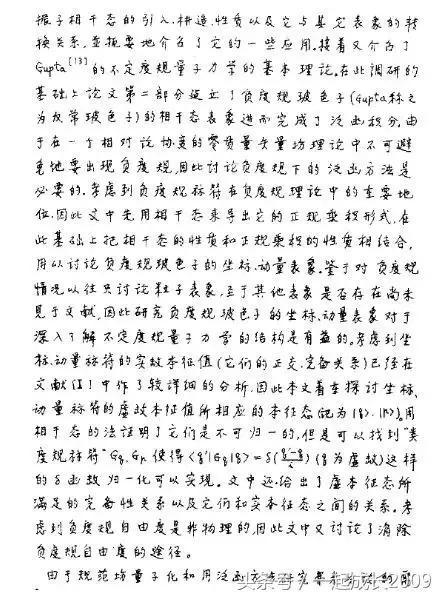 振子相干态的引入、构造、性质以及它与其它表象的转
换关系,并扼要地介绍了它的一些应用。接着又介绍了
Gupta[13]的不定度规量子力学的基本理论。在此调研的
基础上论文第二部分建立了负度规玻色子(Gupta称之
为反常玻色子)的相干态表象进而完成了泛函积分。由
于在一个相对论协变的零质量矢量场理论中不可避
免地要出现负度规,因此讨论负度规下的泛函方法是
必要的。考虑到负度规标符在负度规理论中的重要地
位,因此文中先用相干态来导出它的正规乘积形式,在
此基础上把相干态的性质和正规乘积的性质相结合,
用以讨论负度规玻色子的坐标、动量表象。鉴于对负度规
情况以往只讨论粒子表象,至于其他表象是否存在尚未
见于文献,因此研究负度规玻色子的坐标、动量表象对于
深入了解不定度规量子力学的结构是有益的。考虑到坐
标、动量标符的实数本征值(它们的正交、完备关系)已经在
文献中作了较详细的分析,因此本文着重探讨坐标、
动量标符的虚数本征值所相应的本征态(记为|g>、|h>),用
相干态的法证明了它们是不可归一的,但是可以找到"类
度规标符" 使得 (g为虚数)这样
的δ函数归一化可以实现。文中还给出了虚本征态所
满足的完备性关系以及它们和实本征态之间的关系。考
虑到负度规自由度是非物理的,因此文中又讨论了消除
负度规自由度的途径。
由于规范场量子化和用泛函方法研究
头条号 / 一起成长2009